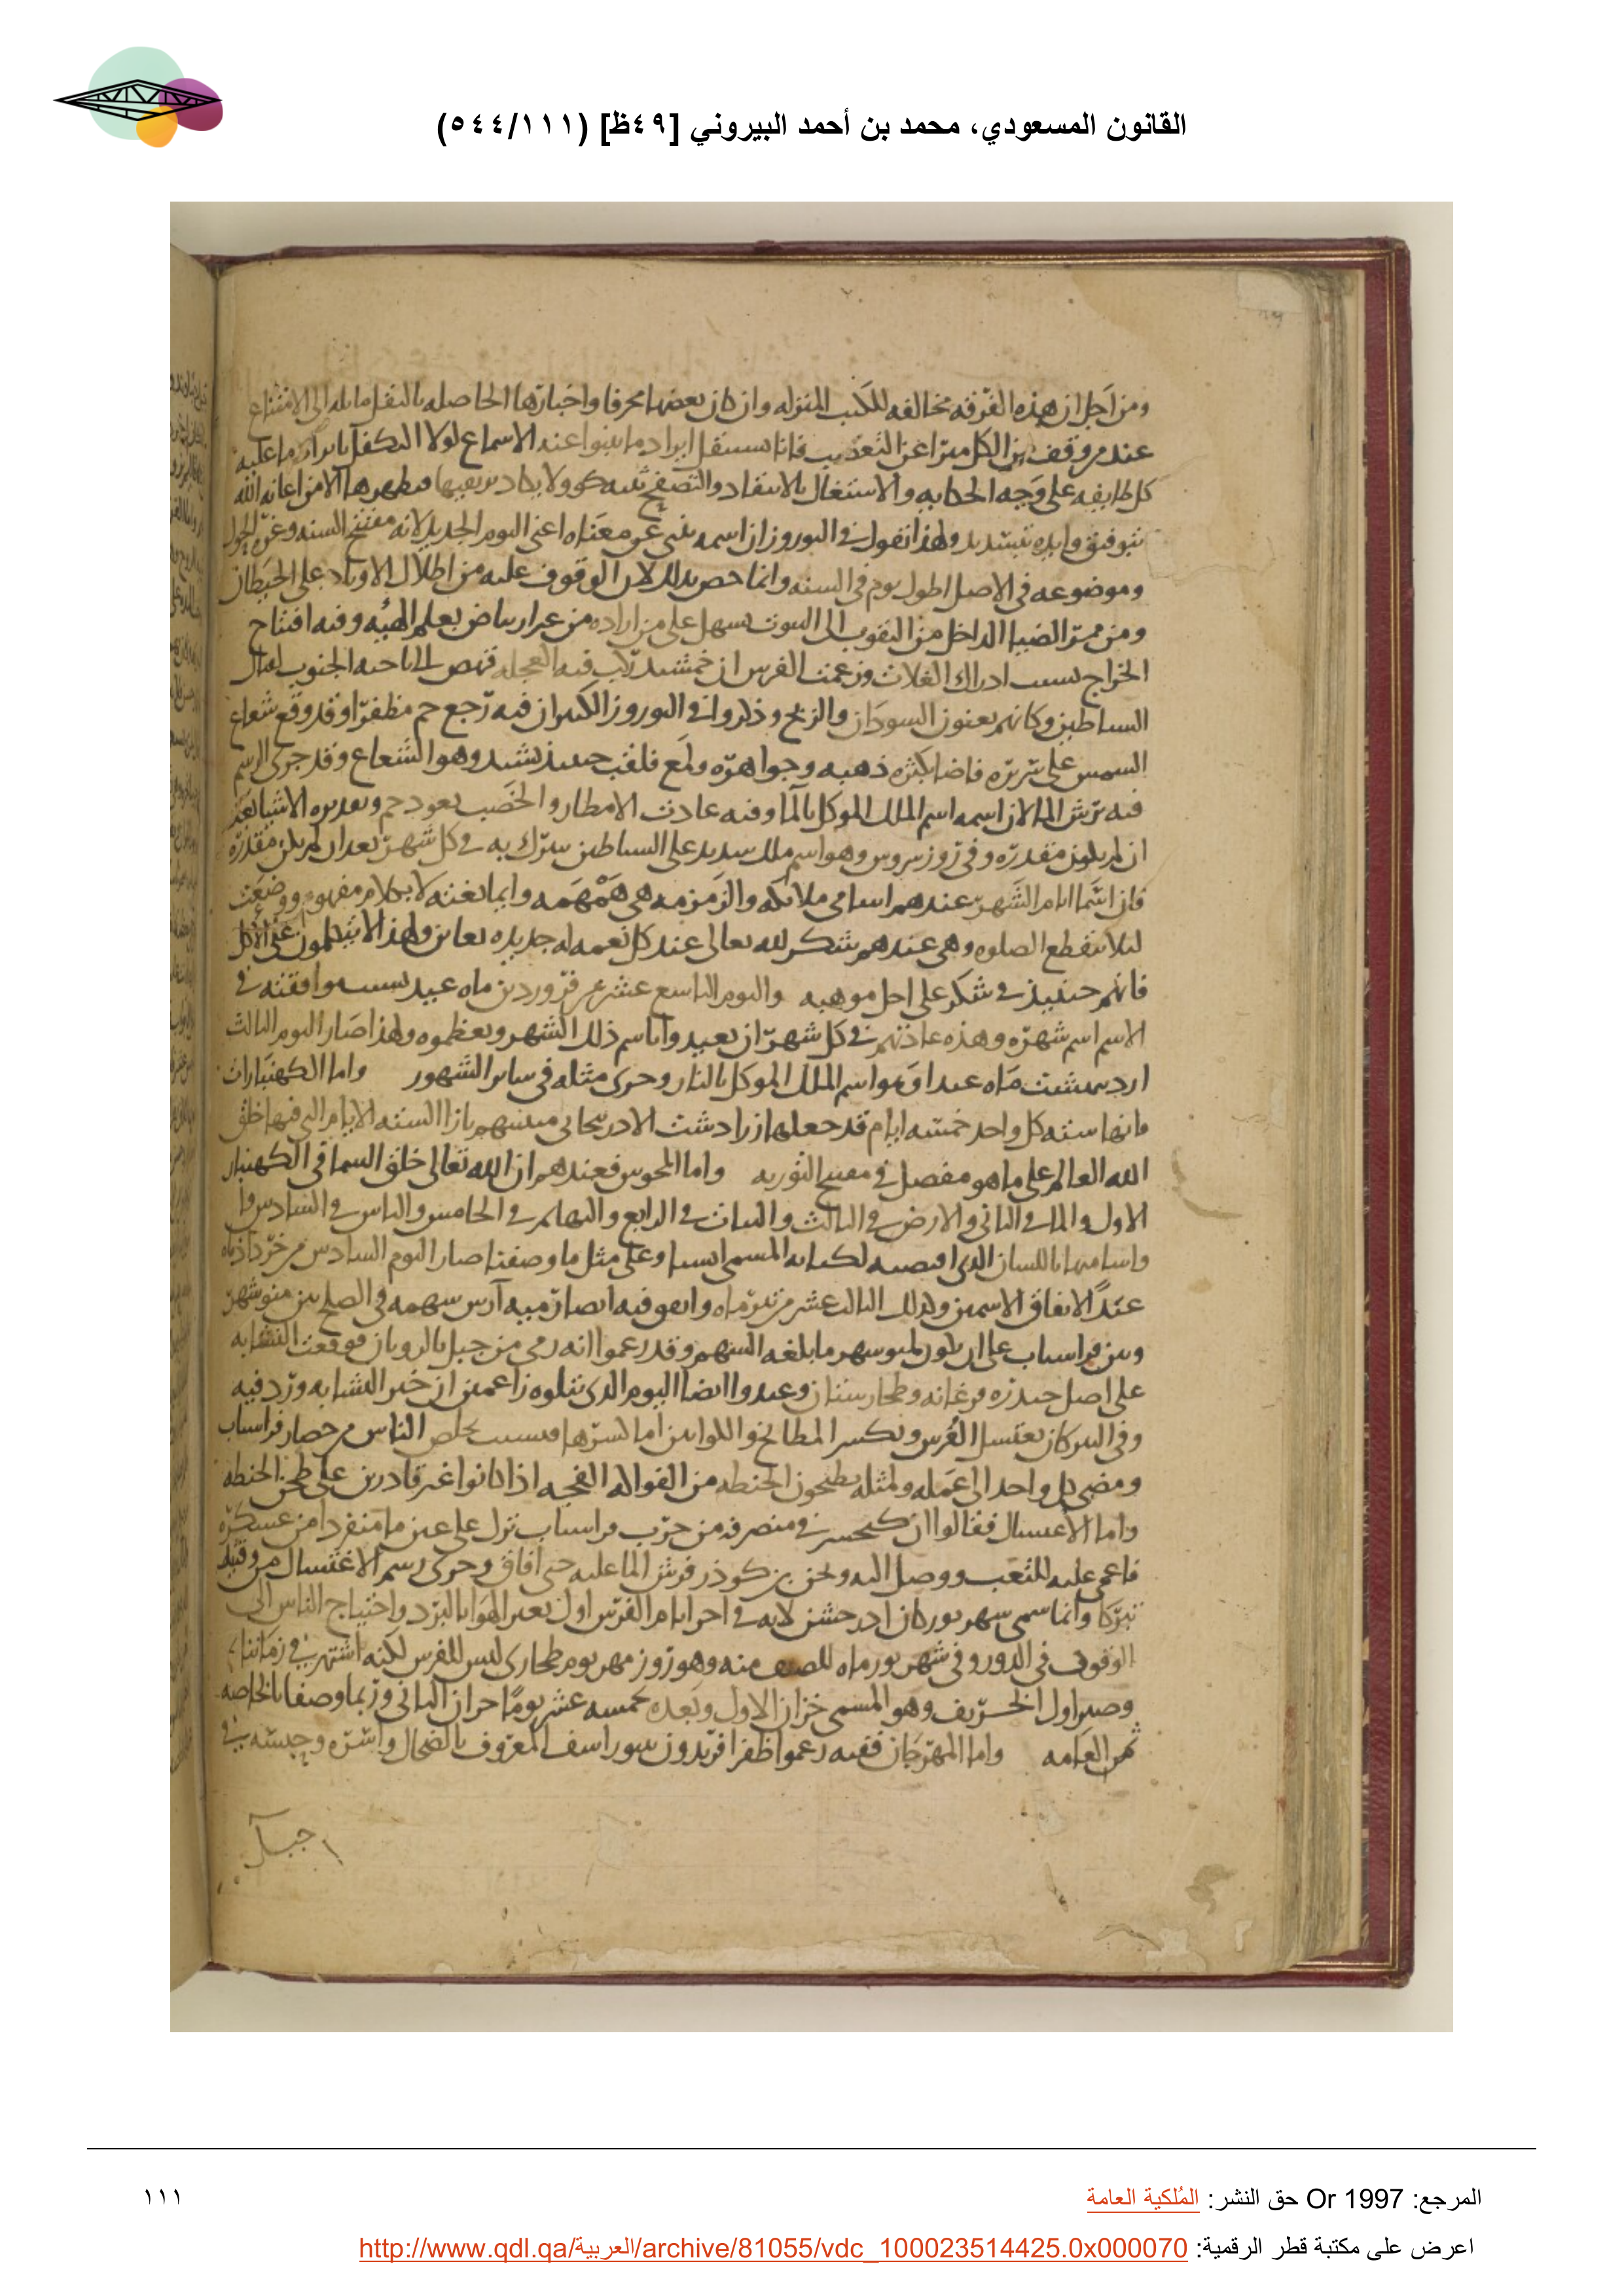 القانون المسعودي، محمد بن أحمد البيروني [٤٩ظ] (٥٤٤/١١١)
ومن اجل ان هذه الفرقه مخالفه للكتب المنزله وان كان بعضها محرفا واخبارها الحاصله بالنقل مايله الى الامتناع
عند من وقف من الكل مبرا عن التعصب فانا نستثقل ايراد ما بنبوا عنه الاسماع لولا التكفل بايراد ما عليه
كل طايفه على وجه الحكايه والاشتغال بالانتقاد والتصفح ولا يكاد
بتوفيق وايده بتسديد ولهذا نقول في النوروز ان اسمه ينبي عن معناه اعنى اليوم الجديد لانه مفتتح السنه وغرة الحول
وموضوعه في الاصل اطول يوم في السنه وانما خص بذلك لان الوقوف عليه من اظلال الاوتاد على الحيطان
ومن ممر الضيا الداخل من الثقوب الى البيوت يسهل على من اراده من غير ارتياض بعلم الهيئه وفيه افتتاح
الخراج بسبب ادراك الغلات وزعمت الفرس ان جمشيد ركب فيه العجله فنهض الى ناحيه الجنوب لقتال
الشياطين وكانهم يعنون السودان والزنج وذكروا في النوروز الكبير ان فيه رجع جم مظفرا وقد وقع شعاع
الشمس على سريره فاضا بكثره ذهبه وجواهره ولمع فلقب حينئذ بشيد وهو الشعاع وقد جرى الرسم
فيه برش الما لان اسمه اسم الملك الموكل بالما وفيه عادت الامطار والخصب بعود جم وتقديره الاشيا بعد
ان لم يكن مقدره وفي روز سروس وهو اسم ملك شديد على الشياطين يتبرك به في كل شهر بعد ان لم يكن مقدره
فان اسما ايام الشهر عندهم اسامي ملائكه والزمزمه هي همهمه وايما بغنه لا بكلام مفهوم ووضعت
لئلا تنقطع الصلوه وهي عندهم شكر لله تعالى عند كل نعمه له جديده تعاين ولهذا لا يتكلمون على الاكل
فانهم حينئذ في شكر على اجل موهبه واليوم التاسع عشر من فروردين ماه عيد بسبب موافقته في
الاسم اسم شهره وهذه عادتهم في كل شهر ان يعيدوا باسم ذلك الشهر ويعظموه ولهذا صار اليوم الثالث
اردبهشت ماه عيدا وهو اسم الملك الموكل بالنار وجرى مثله في ساير الشهور واما الكهنبارات
فانها سته كل واحد خمسه ايام قد جعلها زرادشت الاذربيجاني بازا السته الايام التي فيها خلق
الله العالم على ما هو مفصل في مفتتح التوريه واما المجوس فعندهم ان الله تعالى خلق السما في الكهنبار
الاول والما في الثاني والارض في الثالث والنبات في الرابع والبهايم في الخامس والناس في السادس
واساميها باللسان الذي لكتابه المسمى ابستا وعلى مثل ما وصفنا صار اليوم السادس من خرداذماه
عيدا لاتفاق الاسمين وكذلك الثالث عشر من تيرماه واتفق فيه ايضا رميه آرس سهمه في الصلح بين منوشهر
وبين فراسياب على ان يكون لمنوشهر ما بلغه السهم وقد زعموا انه رمى من جبل بالرويان فوقعت النشابه
على اصل جوزه فرغانه وطخارستان وعيدوا ايضا اليوم الذي يتلوه زاعمين ان خبر النشابه ورد فيه
وفي التيركان يغتسل الفرس وبكسر المطابخ والكوانين اما كسرها فبسبب تخلص الناس من حصار فراسياب
ومضى كل واحد الى عمله ولمثله يطبخون الحنطه من الفواكه الفجه اذ كانوا غير قادرين على طحن الحنطه
واما الاغتسال فقالوا ان كيخسرو في منصرفه من حرب فراسياب نزل على عين ما منفردا من عسكره
فاغمى عليه للتعب ووصل اليه ويجن بن كوذر فرش الما عليه حتى افاق وجرى رسم الاغتسال من وقته
تبركا وانما سمى شهريوركان اذرجشن لانه في اخر ايام الفرس اول تغير الهوا بالبرد واحتياج الناس الى
الوقود في الدور وفي شهريورماه للنصف منه وهو روز مهر يوم طخاري ليس للفرس لكنه اشتهر في زماننا
وصير اول الخريف وهو المسمى خزان الاول وبعده بخمسه عشر يوما خزان الثاني وربما وصفا بالخاصه
ثم العامه واما المهرجان ففيه زعموا ظفر افريدون بيوراسف المعروف بالضحاك واسره وحبسه في
جبال
المرجع: Or 1997 حق النشر: المُلكية العامة
١١١
اعرض على مكتبة قطر الرقمية: http://www.qdl.qa/العربية/archive/81055/vdc_100023514425.0x000070